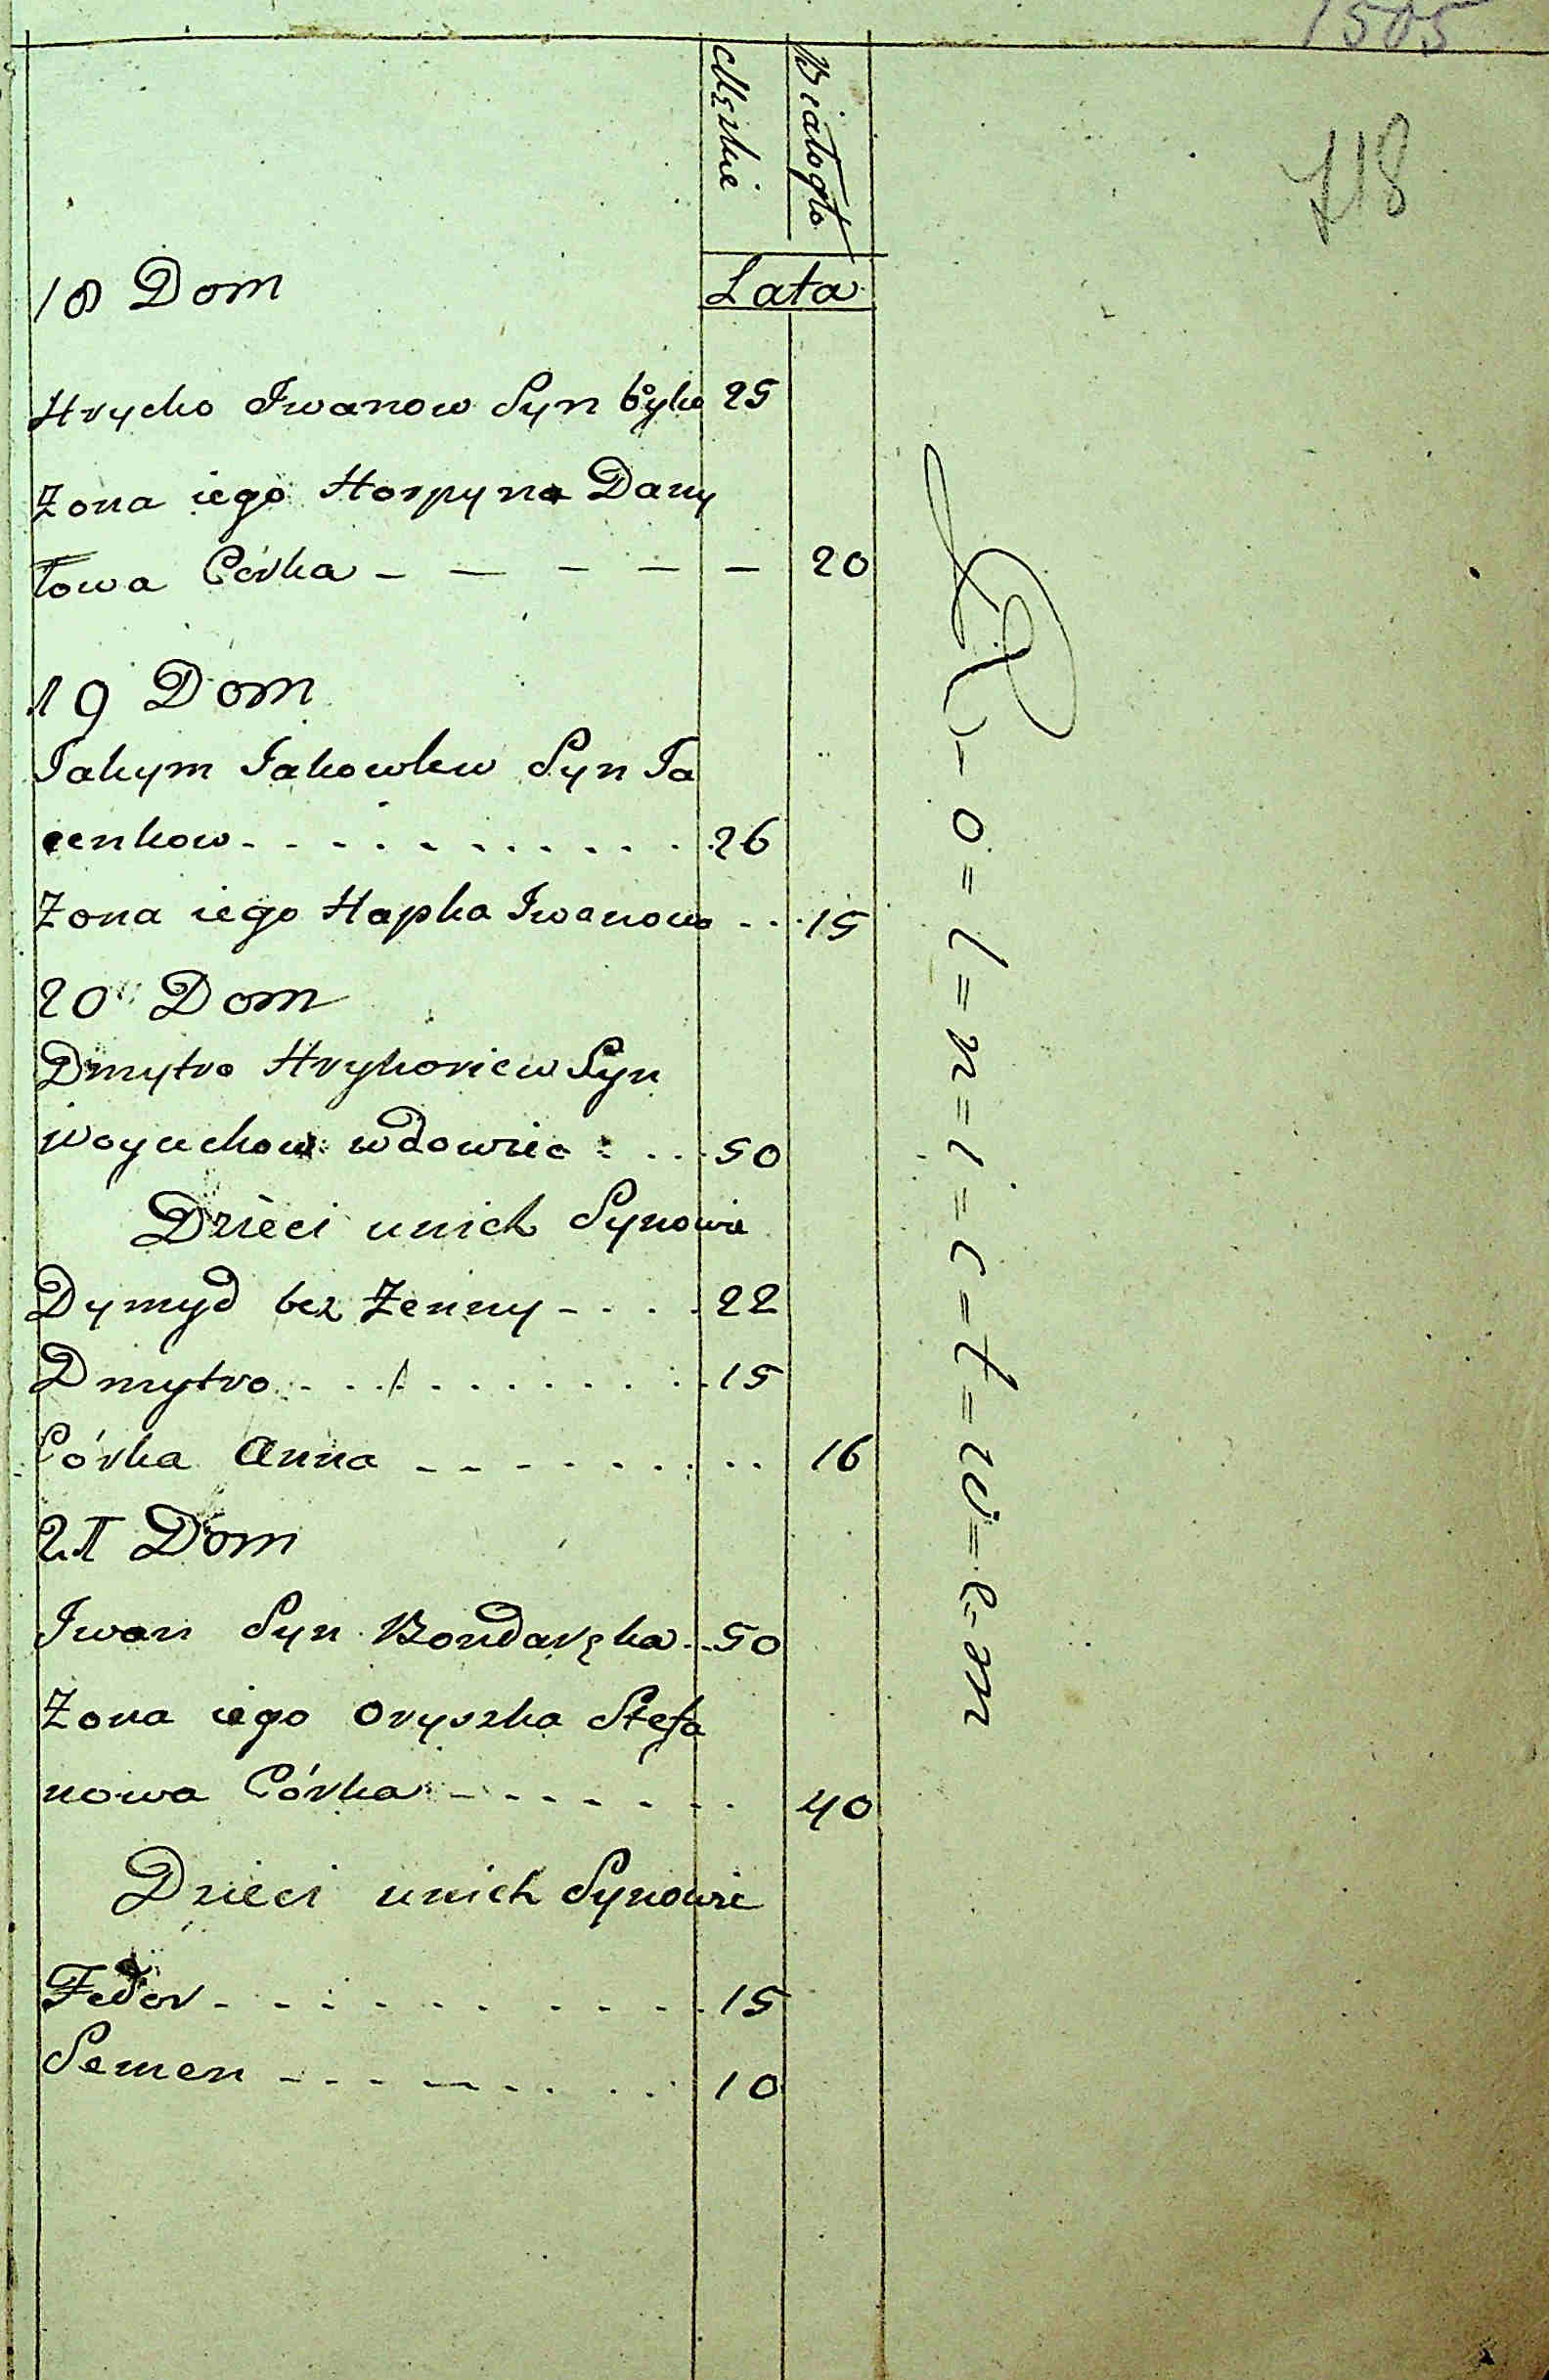 1505
718
Męzkie
Białogło
Lata
18 Dom
Hrycko Iwanow Syn byko 25
Zona iego Horpyna Dany
łowa Córka - - - - - 20
19 Dom
Jakym Jakowlew Syn Ja
cenkow - - - - - - 26
Zona iego Hapka Iwanowa - - 15
20 Dom
Dmytro Hryhoriew Syn
wdowiec - - - 50
Dzieci unich Synowie
Dymyd bez Zenny - - - - 22
Dmytro - - - - - - 15
Córka Anna - - - - - - 16
21 Dom
Iwan Syn Bondarzka - - 50
Zona iego Oryszka Stefa
nowa Córka - - - - - - 40
Dzieci unich Synowie
Fedor - - - - - - - 15
Semen - - - - - - 10